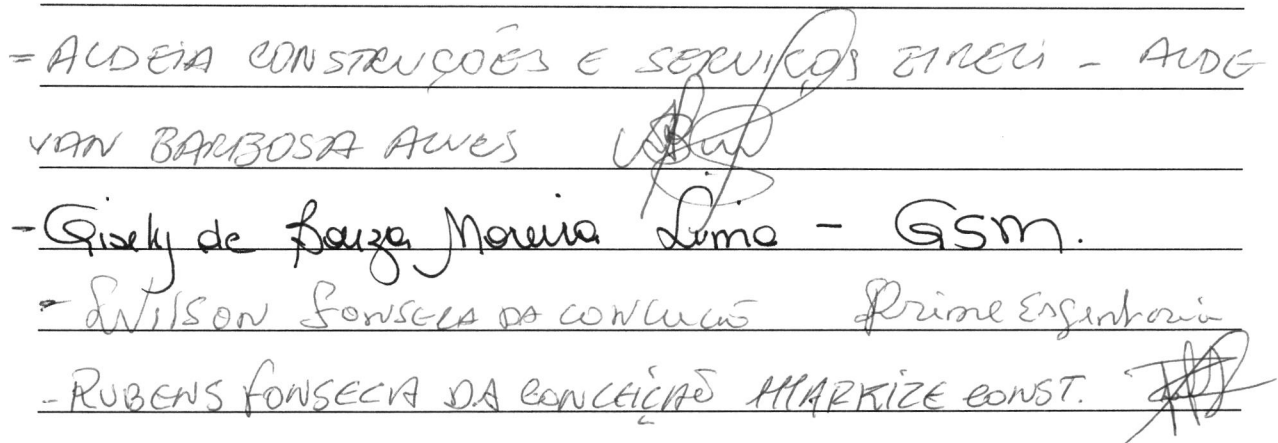 = ALDEIA CONSTRUÇÕES E SERVIÇOS EIRELI - ALDE
VAN BARBOSA ALVES
- Gisely de Souza Moreira Lima - GSM.
- WILSON FONSECA DA CONCEICÃO Prime Engenharia
- RUBENS FONSECA DA CONCEIÇÃO CONST.